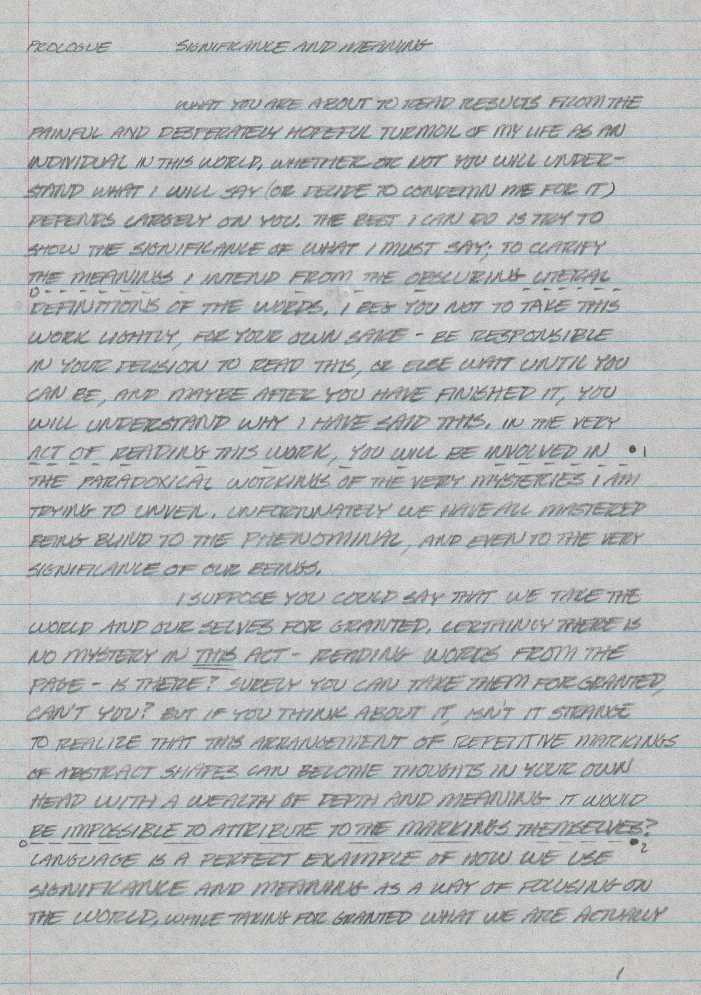 PROLOGUE SIGNIFICANCE AND MEANING
WHAT YOU ARE ABOUT TO READ RESULTS FROM THE
PAINFUL AND DESPERATELY HOPEFUL TURMOIL OF MY LIFE AS AN
INDIVIDUAL IN THIS WORLD. WHETHER OR NOT YOU WILL UNDER-
STAND WHAT I WILL SAY (OR DECIDE TO CONDEMN ME FOR IT)
DEPENDS LARGELY ON YOU. THE BEST I CAN DO IS TRY TO
SHOW THE SIGNIFICANCE OF WHAT I MUST SAY; TO CLARIFY
THE MEANINGS I INTEND FROM THE OBSCURING LITERAL
DEFINITIONS OF THE WORDS. I BEG YOU NOT TO TAKE THIS
WORK LIGHTLY, FOR YOUR OWN SAKE - BE RESPONSIBLE
IN YOUR DECISION TO READ THIS, OR ELSE WAIT UNTIL YOU
CAN BE, AND MAYBE AFTER YOU HAVE FINISHED IT, YOU
WILL UNDERSTAND WHY I HAVE SAID THIS. IN THE VERY
ACT OF READING THIS WORK, YOU WILL BE INVOLVED IN 1
THE PARADOXICAL WORKINGS OF THE VERY MYSTERIES I AM
TRYING TO UNVEIL. UNFORTUNATELY WE HAVE ALL MASTERED
BEING BLIND TO THE PHENOMINAL, AND EVEN TO THE VERY
SIGNIFICANCE OF OUR BEINGS.
I SUPPOSE YOU COULD SAY THAT WE TAKE THE
WORLD AND OUR SELVES FOR GRANTED. CERTAINLY THERE IS
NO MYSTERY IN THIS ACT - READING WORDS FROM THE
PAGE - IS THERE? SURELY YOU CAN TAKE THEM FOR GRANTED,
CAN'T YOU? BUT IF YOU THINK ABOUT IT, ISN'T IT STRANGE
TO REALIZE THAT THIS ARRANGEMENT OF REPETITIVE MARKINGS
OF ABSTRACT SHAPES CAN BECOME THOUGHTS IN YOUR OWN
HEAD WITH A WEALTH OF DEPTH AND MEANING IT WOULD
BE IMPOSSIBLE TO ATTRIBUTE TO THE MARKINGS THEMSELVES? 2
LANGUAGE IS A PERFECT EXAMPLE OF HOW WE USE
SIGNIFICANCE AND MEANING AS A WAY OF FOCUSING ON
THE WORLD, WHILE TAKING FOR GRANTED WHAT WE ARE ACTUALLY
1